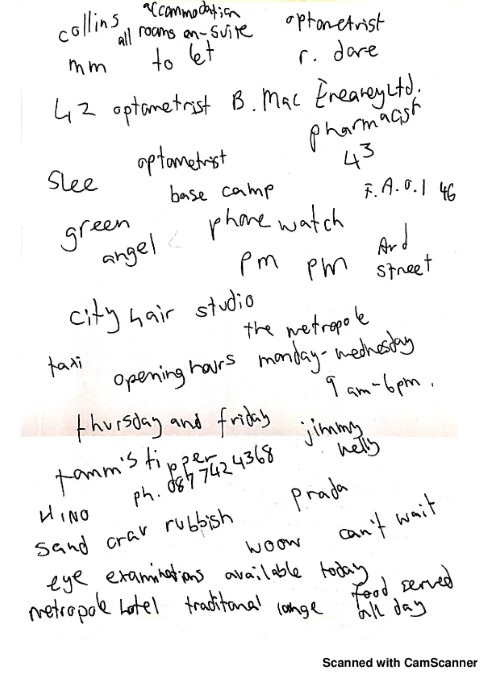 collins accommodation optometrist
all rooms en-suite
mm to let r. dore
42 optometrist B. Mac Enearey Ltd.
pharmacist
optometrist 43
slee base camp F.A.O.I 46
green phone watch
angel pm pm Ard street
city hair studio
the metropole
taxi opening hours monday-wednesday
9 am-6pm.
thursday and friday jimmy
tamm's tipper nelly
ph. 087 7424368
HINO prada
sand crav rubbish
woow can't wait
eye examinations available today
metropole hotel traditonal longe food served
all day
Scanned with CamScanner